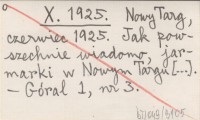 X. 1925. Nowy Targ,
czerwiec 1925. Jak pow-
szechnie wiadomo, jar-
marki w Nowym Targu [...].
– Góral 1, nr 3.